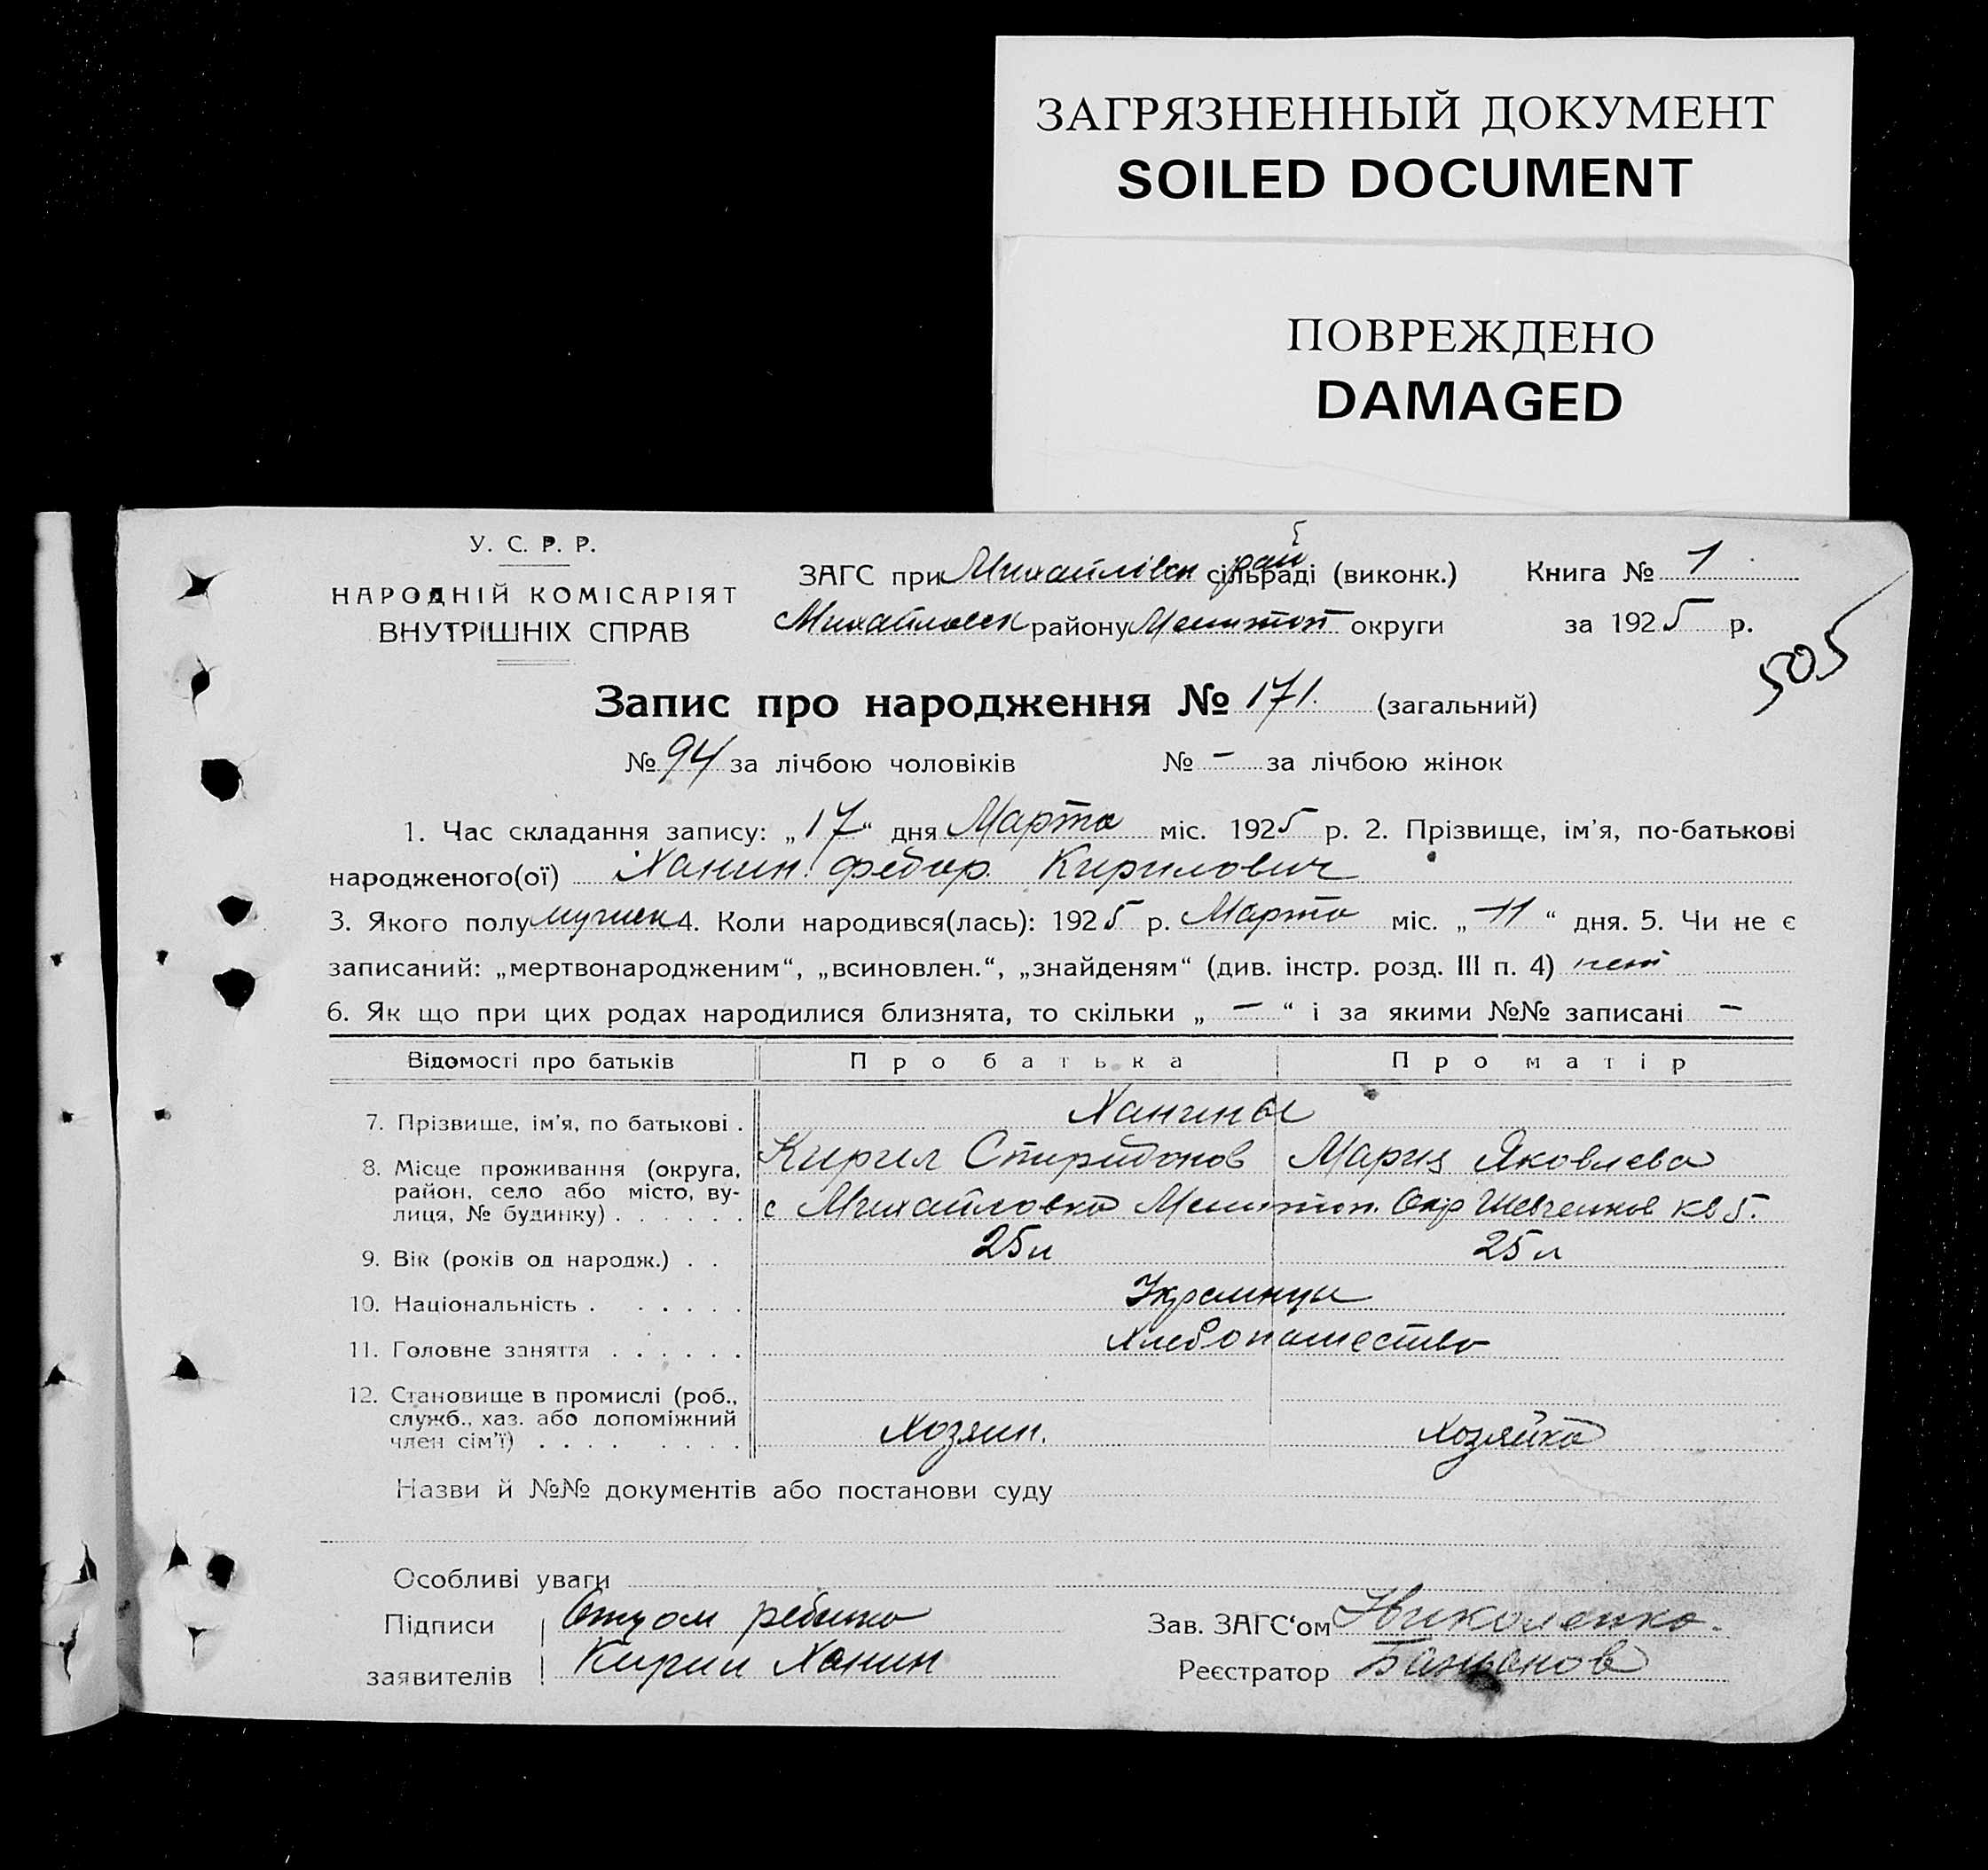 ЗАГРЯЗНЕННЫЙ ДОКУМЕНТ
SOILED DOCUMENT
ПОВРЕЖДЕНО
DAMAGED
У. С. Р. Р.
НАРОДНІЙ КОМІСАРІЯТ
ВНУТРІШНІХ СПРАВ
ЗАГС при Михайлівск сільраді рай (виконк.) Книга № 1
Михайловск району Мелитоп округи за 1925 р.
505
Запис про народження № 171. (загальний)
№ 94 за лічбою чоловіків № - за лічбою жінок
1. Час складання запису: „17“ дня Марта міс. 1925 р. 2. Прізвище, ім'я, по-батькові
народженого(ої) Ханин Федор. Кирилович
3. Якого полу мужск 4. Коли народився(лась): 1925 р. Марта міс. „11“ дня. 5. Чи не є
записаний: „мертвонародженим“, „всиновлен.“, „знайденям“ (див. інстр. розд. III п. 4) нет
6. Як що при цих родах народилися близнята, то скільки „ - “ і за якими №№ записані -
Відомості про батьків Про батька Про матір
7. Прізвище, ім'я, по батькові . Ханины
8. Місце проживання (округа, Кирил Спиридонов Мария Яковлева
район, село або місто, ву-
лиця, № будинку) . . . . . . с Михайловка Мелитоп. Окр Шевченков кв 5.
9. Вік (років од народж.) . . 25 л 25 л
10. Національність . . . . . . Украинцы
11. Головне заняття . . . . . . Хлебопашество
12. Становище в промислі (роб.,
служб., хаз. або допоміжний
член сім'ї) . . . . . . . . Хозяин. Хозяйка
Назви й №№ документів або постанови суду
Особливі уваги
Підписи Отцом ребенка Зав. ЗАГС'ом
заявителів Кирил Ханин Реєстратор